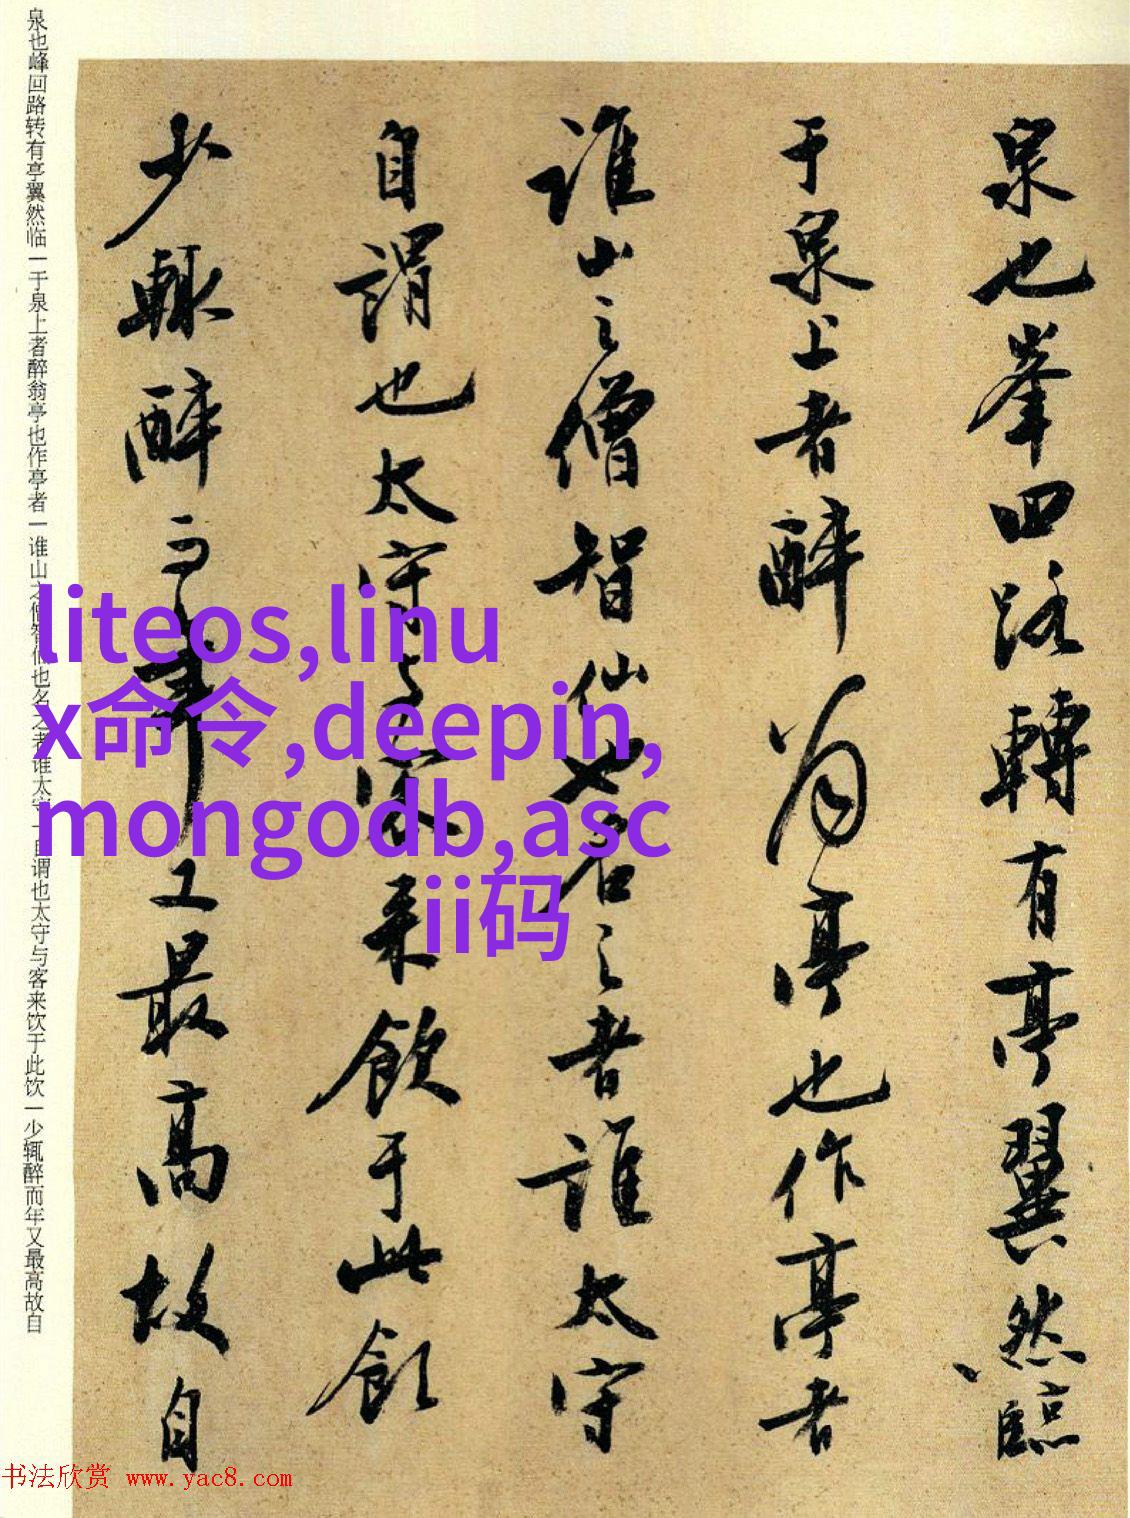 泉也峰回路转有亭翼然临一于泉上者醉翁亭也作亭者一谁山之僧智仙也名之者谁太守一自谓也太守与客来饮于此饮一少辄醉而年又最高故自
泉也峯回路轉有亭翼然臨
于泉上者醉翁亭也作亭者
誰山之僧智仙也名之者誰太守
自謂也太守与客来飲于此飲
少輒醉而年又最高故自
liteos,linu
x命令,deepin,
mongodb,asc
ii码
书法欣赏 www.yac8.com